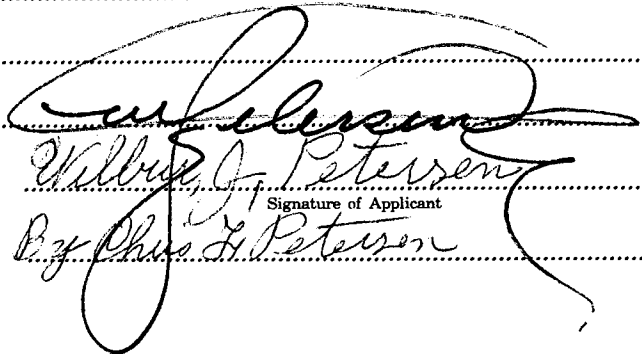 Petersen
Wilbur J. Petersen
Signature of Applicant
By Chris L Petersen